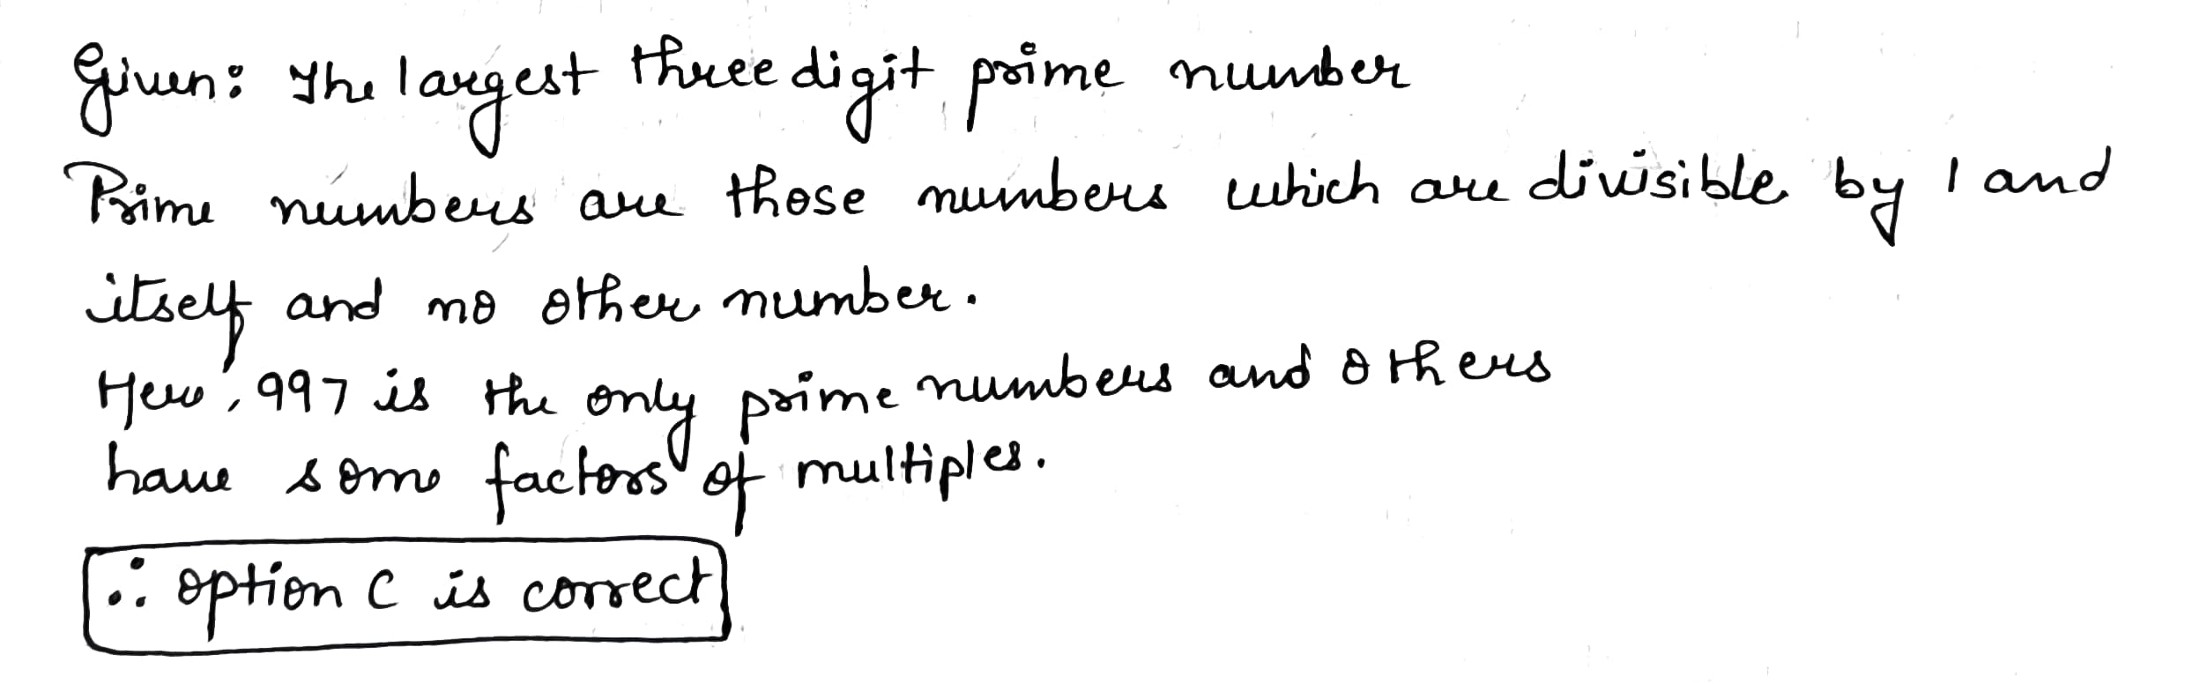 Given: The largest three digit prime number
Prime numbers are those numbers which are divisible by 1 and
itself and no other number.
Here, 997 is the only prime numbers and others
have some factors of multiples.
∴ option C is correct